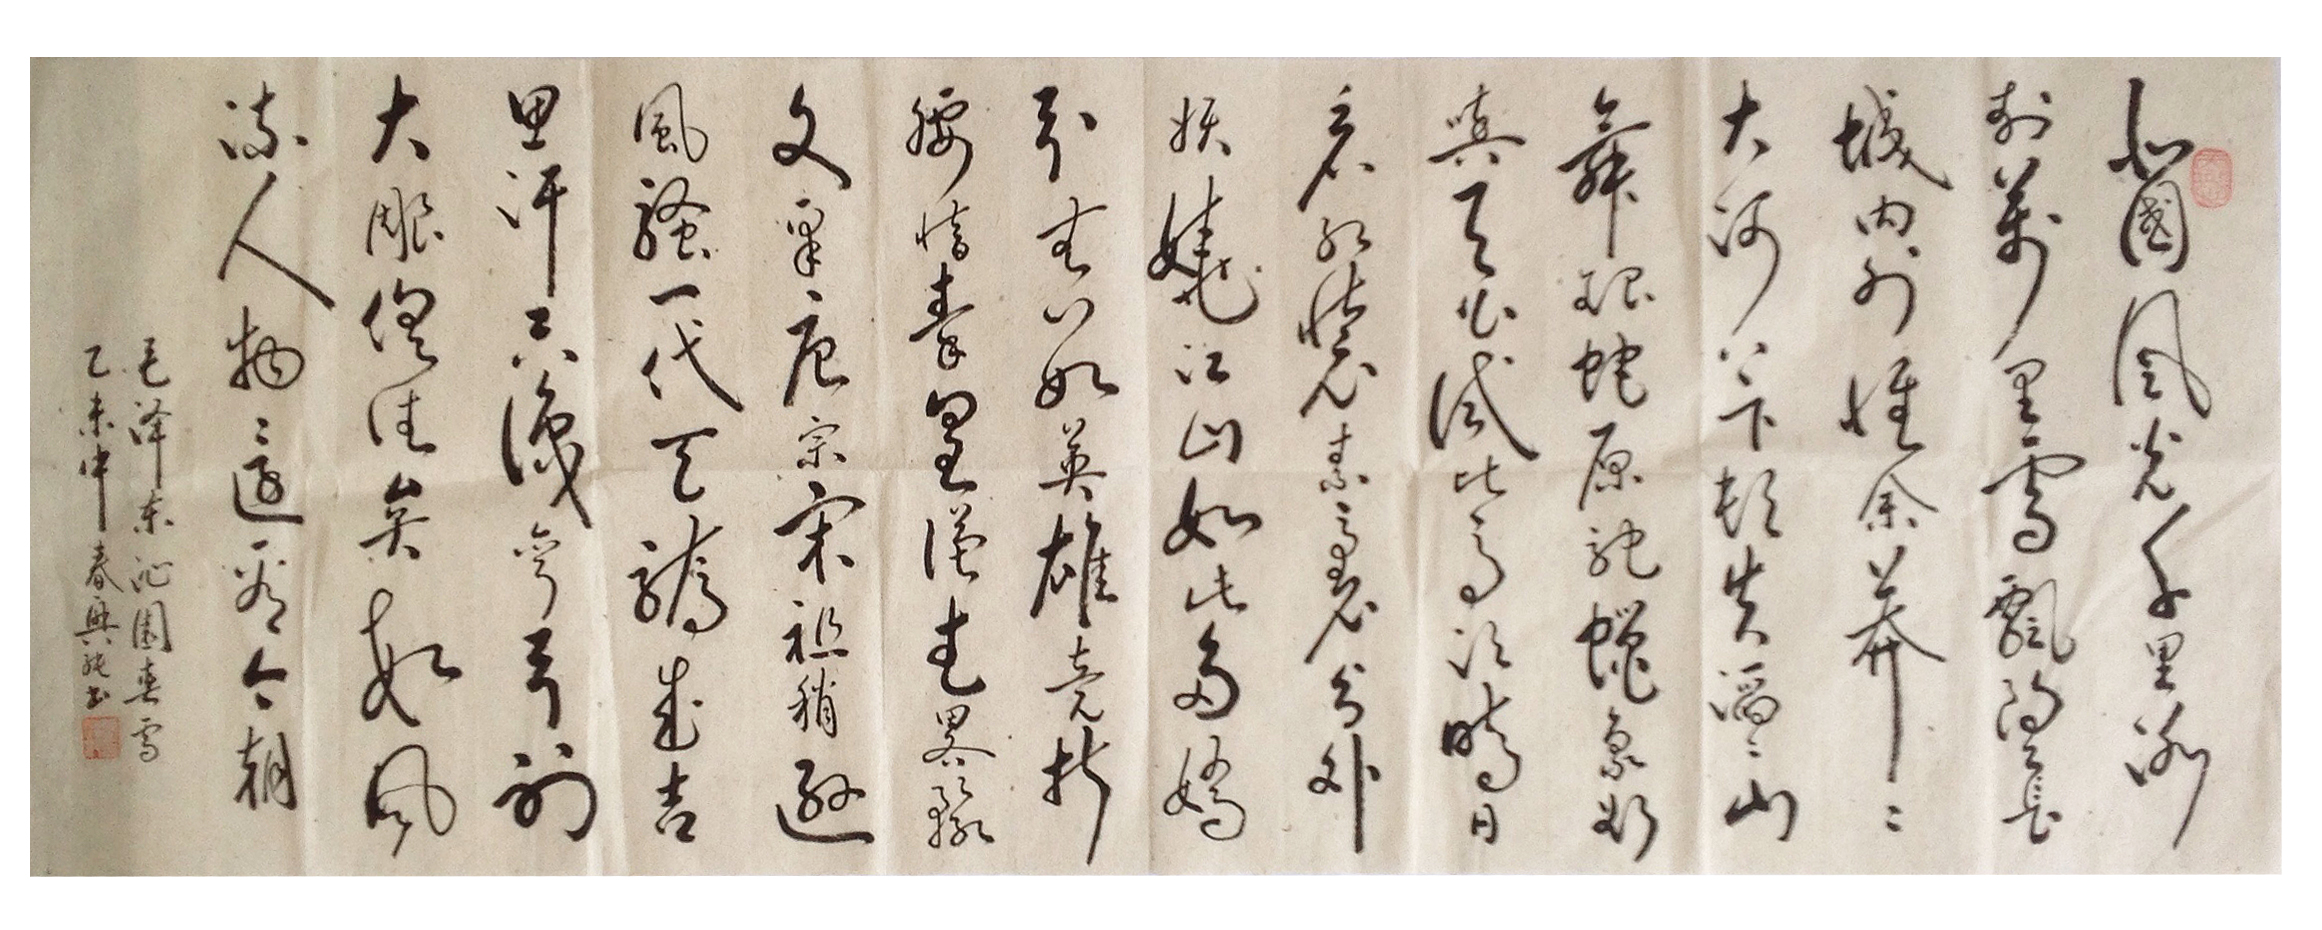 北國風光千里冰
封萬里雪飄望長
城内外惟余莽〻
大河上下頓失滔〻山
舞銀蛇原馳蠟象欲
與天公試比高須晴日
看紅裝素裹分外
妖嬈江山如此多嬌
引無數英雄競折
腰惜秦皇漢武略輸
文采唐宗宋祖稍遜
風騷一代天驕成吉
思汗只識彎弓射
大雕俱往矣數風
流人物還看今朝
毛泽東沁園春雪
乙未中春興书